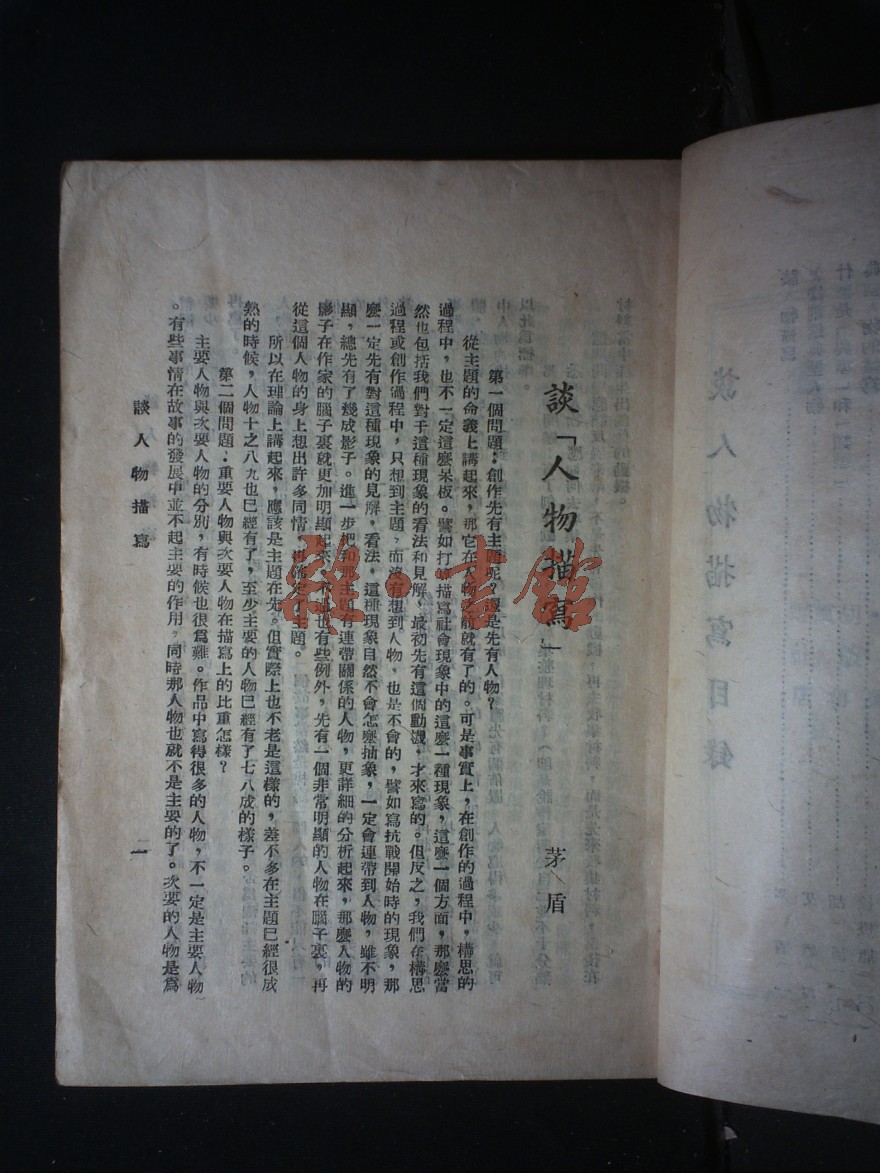 談「人物描寫」
茅盾
第一個問題：創作先有主題呢？還是先有人物？
從主題的命義上講起來，那它在人物之前就有了的。可是事實上，在創作的過程中，構思的
過程中，也不一定這麼呆板。譬如打算描寫社會現象中的這麼一種現象，這麼一個方面，那麼當
然也包括我們對于這種現象的看法和見解，最初先有這個動機，才來寫的。但反之，我們在構思
過程或創作過程中，只想到主題，而沒有想到人物，也是不會的，譬如寫抗戰開始時的現象，那
麼一定先有對這種現象的見解，看法，這種現象自然不會怎麼抽象，一定會連帶到人物，雖不明
顯，總先有了幾成影子。進一步把和那主題有連帶關係的人物，更詳細的分析起來，那麼人物的
影子在作家的腦子裏就更加明顯起來，不過也有些例外，先有一個非常明顯的人物在腦子裏，再
從這個人物的身上想出許多同情，再確定了主題。
所以在理論上講起來，應該是主題在先。但實際上也不老是這樣的，差不多在主題已經很成
熟的時候，人物十之八九也已經有了，至少主要的人物已經有了七八成的樣子。
第二個問題：重要人物與次要人物在描寫上的比重怎樣？
主要人物與次要人物的分別，有時候也很爲難。作品中寫得很多的人物，不一定是主要人物
。有些事情在故事的發展中並不起主要的作用，同時那人物也就不是主要的了。次要的人物是爲
談人物描寫
一
談人物描寫目錄
雜·書館